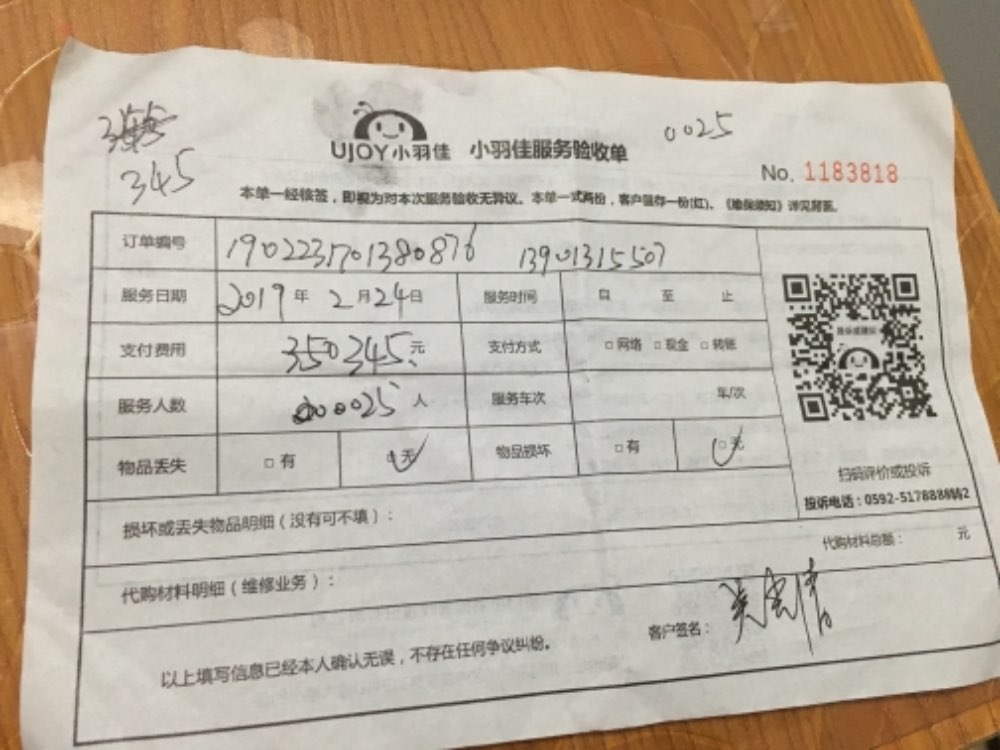 0025
345
UJOY小羽佳 小羽佳服务验收单
No. 1183818
本单一经核签，即视为对本次服务验收无异议。本单一式两份，客户留存一份(红)、《维保须知》详见背面。
订单编号 1902231701380876 13901315507
服务日期 2019年2月24日 服务时间 自 至 止
支付费用 350 345元 支付方式 □网络 □现金 □转账
服务人数 0025人 服务车次 车/次
物品丢失 □有 □无 物品损坏 □有 □无
扫码评价或投诉
投诉电话：0592-5178888转2
损坏或丢失物品明细（没有可不填）：
代购材料总额： 元
代购材料明细（维修业务）：
客户签名：
以上填写信息已经本人确认无误，不存在任何争议纠纷。